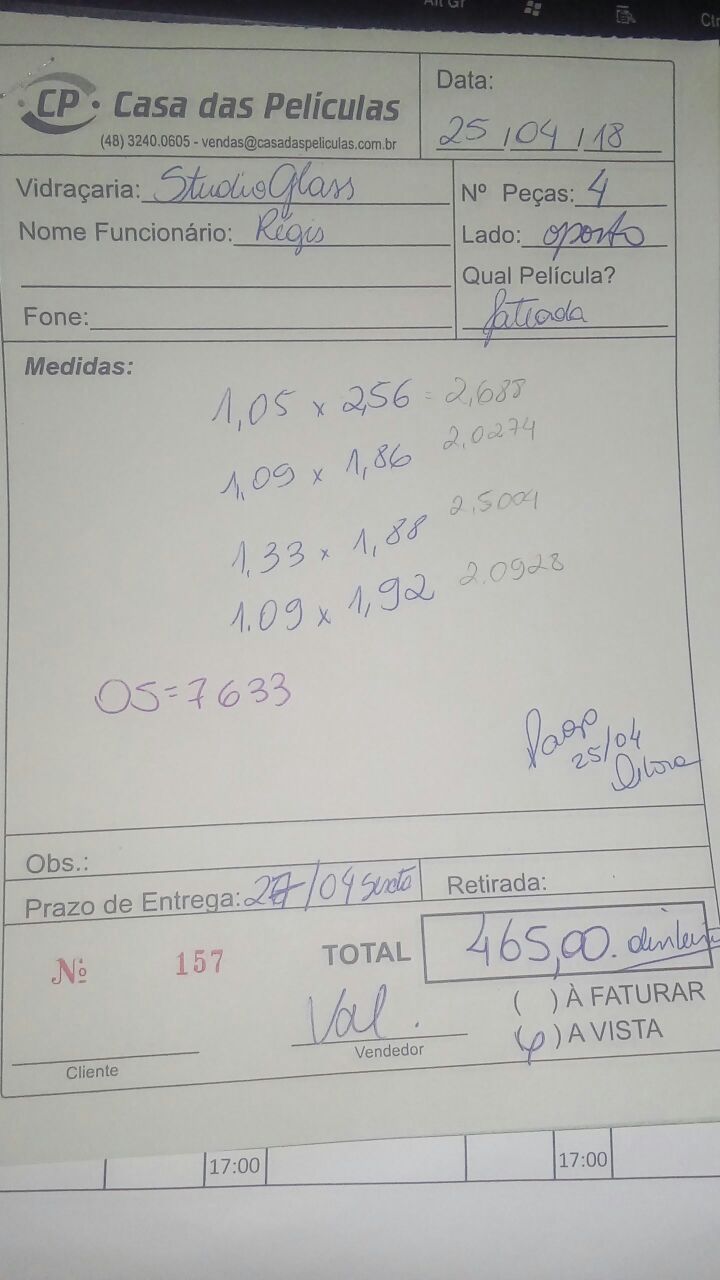 Alt Gr
CP Casa das Películas
(48) 3240.0605 - vendas@casadaspeliculas.com.br
Data:
25/04/18
Vidraçaria: StudioGlass
Nome Funcionário: Régis
Fone:
Nº Peças: 4
Lado: oposto
Qual Película?
fatiada
Medidas:
1,05 x 2,56 = 2,688
1,09 x 1,86 2.0274
1,33 x 1,88 2,5004
1.09 x 1,92 2.0928
OS=7633
Pago
25/04
Obs.:
Prazo de Entrega: 27/04 sexta
Retirada:
Nº 157
TOTAL 465,00. dinheiro
( ) À FATURAR
( ) A VISTA
Val.
Vendedor
Cliente
17:00
17:00